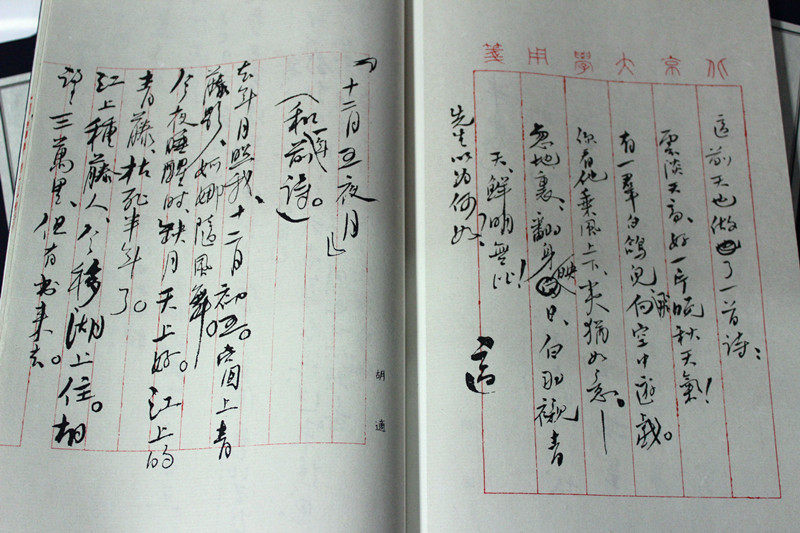 北京大學用箋
適前天也做了一首詩：
雲淡天高，好一片晚秋天氣！
有一羣白鴿兒，飛向空中遊戲。
你看他乘風上下，夷猶如意。—
忽地裏、翻身映日，白羽襯青
天，鮮明無比！
先生以為何如？
適
「十二月五夜月」
（和一年前詩。）
去年月照我，十二月初五。窗上青
藤影，婀娜隨風舞。
今夜睡醒時，缺月天上好。江上的
青藤，枯死半年了。
江上種藤人，今移湖上住。相
望三萬里，但有書來去。
胡適